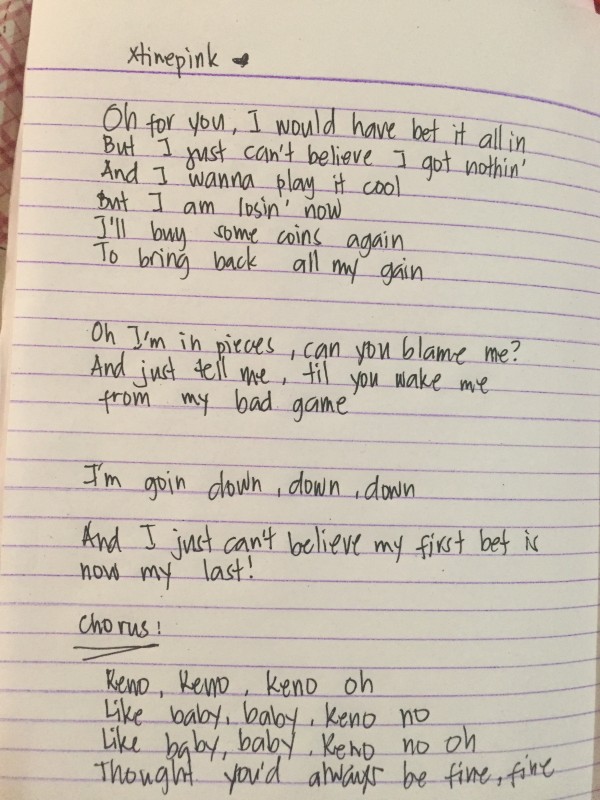 xtinepink
Oh for you, I would have bet it all in
But I just can't believe I got nothin'
And I wanna play it cool
But I am losin' now
I'll buy some coins again
To bring back all my gain
Oh I'm in pieces, can you blame me?
And just tell me, til you wake me
from my bad game
I'm goin down, down, down
And I just can't believe my first bet is
now my last!
Chorus:
Keno, Keno, keno oh
Like baby, baby, Keno no
Like baby, baby, Keno no oh
Thought you'd always be fine, fine